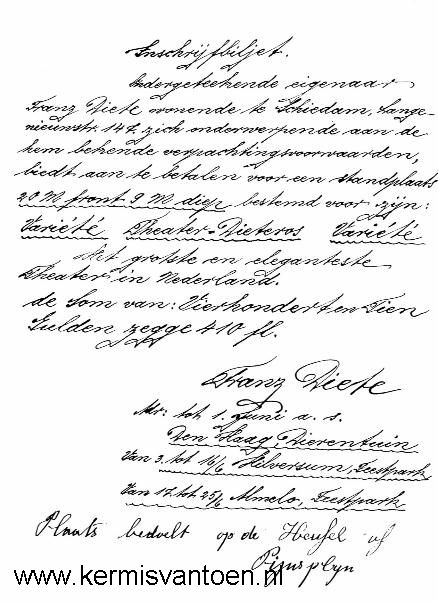 Inschrijfbiljet.
Ondergeteekende eigenaar
Franz Diete wonende te Schiedam, Lange-
nieuwstr. 147. zich onderwerpende aan de
hem bekende verpachtingsvoorwaarden,
biedt aan te betalen voor een standplaats
20 M front 9 M diep bestemd voor zijn:
Variété Theater-Dieteros Variété
Het grotste en eleganteste
Theater in Nederland.
de Som van: Vierhondert en Tien
Gulden zegge 410 fl.
Franz Diete
Adr: tot 1. Juni a. s.
Den Haag, Dierentuin
Van 3. tot 16/6 Hilversum, Feestpark
Van 17. tot 25/6 Almelo, Feestpark
Plaats bedoelt op de Heuvel of
www.kermisvantoen.nl